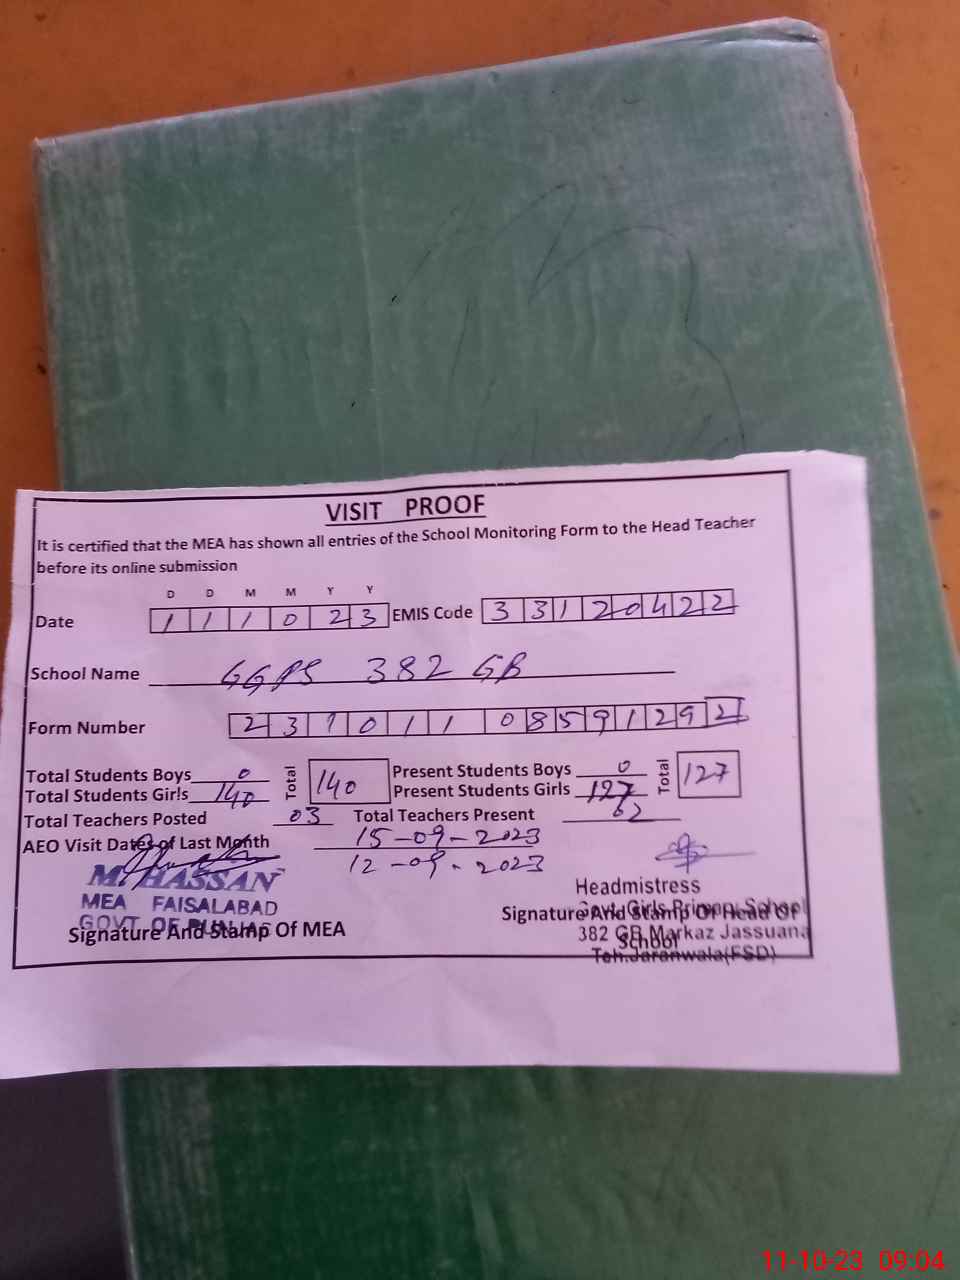 VISIT PROOF
It is certified that the MEA has shown all entries of the School Monitoring Form to the Head Teacher
before its online submission
D D M M Y Y
Date 1 1 1 0 2 3 EMIS Code 3 3 1 2 0 4 2 2
School Name GGPS 382 GB
Form Number 2 3 1 0 1 1 0 8 5 9 1 2 9 2
Total Students Boys 0 Total 140 Present Students Boys 0 Total 127
Total Students Girls 140 Present Students Girls 127
Total Teachers Posted 03 Total Teachers Present 02
AEO Visit Dates of Last Month 15-09-2023
12-09-2023
M. HASSAN
MEA FAISALABAD
GOVT OF PUNJAB
Signature And Stamp Of MEA
Headmistress
Govt. Girls Primary School
Signature And Stamp Of Head Of
School
382 GB Markaz Jassuana
Teh.Jaranwala(FSD)
11-10-23 09:04